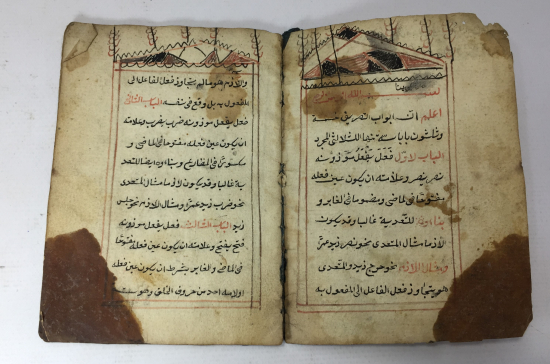 اعلم أن ابواب التصريف خمسة
وثلاثون بابا ستة منها للثلاثى المجرد
الباب الاول فَعَلَ يَفْعُلُ موزونه
نصر ينصر وعلامته ان يكون عين فعله
مفتوحا فى الماضى ومضموما فى الغابر و
بناؤه للتعدية غالبا وقد يكون
لازما مثال المتعدى نحو نصر زيد عمرًا
ومثال اللازم نحو خرج زيد والمتعدى
هو يتجاوز فعل الفاعل الى المفعول به
واللازم هو مالم يتجاوز فعل الفاعل الى
المفعول به بل وقع فى نفسه الباب الثانى
فعل يفعل موزونه ضرب يضرب وعلامته
ان يكون عين فعله مفتوحا فى الماضى و
مكسورًا فى المضارع وبناؤه ايضا للتعد
ية غالبا وقد يكون لازما مثال المتعدى
نحو ضرب زيد عمرًا ومثال اللازم نحو جلس
زيد الباب الثالث فعل يفعل موزونه
فتح يفتح وعلامته ان يكون عين فعله مفتوحًا
فى الماضى والغابر بشرط ان يكون عين فعله
او لامه احد من حروف الحلق وهو ستة